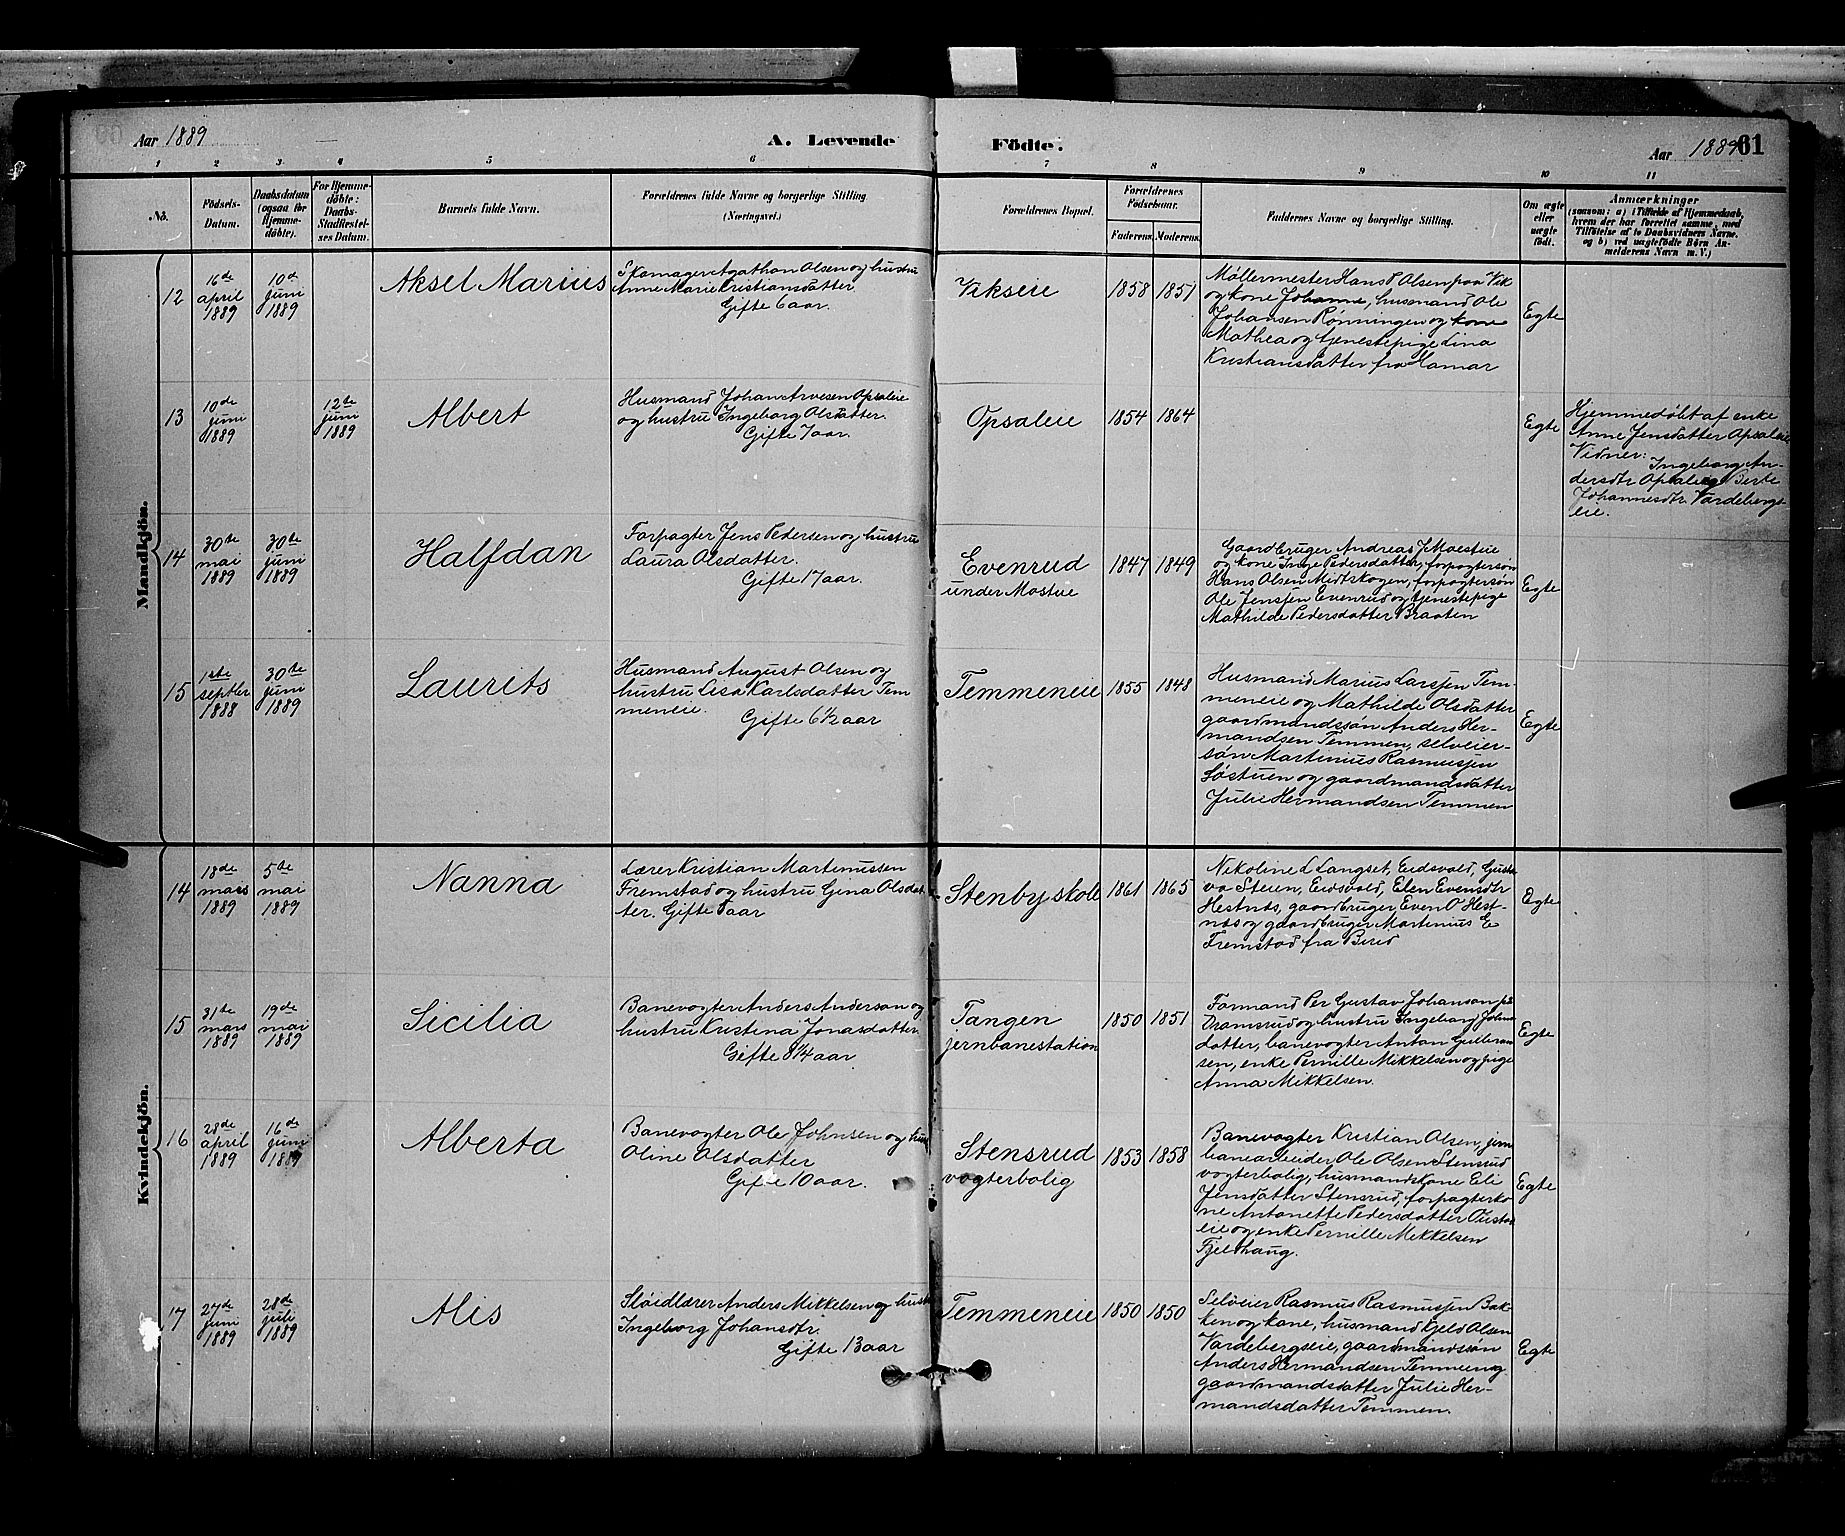 Aar 1889
A. Levende
Födte.
Aar 1889
61
1 2 3 4 5 6 7 8 9 10 11
No.
Födsels-
Datum.
Daabsdatum
(ogsaa for
Hjemme-
döbte).
For Hjemme-
döbte:
Daabs-
Stadfæstel-
ses Datum.
Barnets fulde Navn.
Forældrenes fulde Navne og borgerlige Stilling
(Næringsvei.)
Forældrenes Bopæl.
Forældrenes
Födselsaar.
Faderens. Moderens.
Faddernes Navne og borgerlige Stilling.
Om ægte
eller
uægte
födt.
Anmærkninger
(saasom: a) i Tilfælde af Hjemmedaab,
hvem der har forrettet samme, med
Tilföielse af to Daabsvidners Navne,
og b) ved uægtefödte Börn An-
melderens Navn m. V.)
Mandkjön.
12
16de
april
1889
10de
juni
1889
Aksel Marius
Skomager Agathon Olsen og hustru
Anne Marie Cristiansdatter
Gifte 6 aar.
Vikseie
1858 1851
Møllermester Hans P Olsen paa Vik
og kone Johanne, husmand Ole
Johansen Rønningen og kone
Mathea og tjenestepige Lina
Kristiansdatter fra Hamar
Egte
13
10de
juni
1889
12te
juni
1889
Albert
Husmand Johan Arvesen Opsaleie
og hustru Ingeborg Olsdatter.
Gifte 7 aar.
Opsaleie
1854 1864
Egte
Hjemmedøbt af enke
Anne Jensdatter Opsaleie
Vidner:
Ingeborg An-
dersdtr Opsal og Berte
Johannesdtr Vardebergs-
eie.
14
30te
mai
1889
30te
juni
1889
Halfdan
Forpagter Jens Pedersen og hustru
Laura Olsdatter.
Gifte 17 aar.
Evenrud
under Mostue
1847 1849
Gaardbruger Andreas J Moestue
og kone Inge Pedersdatter, forpagtersøn
Hans Olsen Midtskogen, forpagtersøn
Ole Jensjen Evenrud og tjenestepige
Mathilde Pedersdatter Braaten
Egte
15
1ste
septbr
1888
30te
juni
1889
Laurits
Husmand August Olsen og
hustru Lisa Karlsdatter Tem
meneie.
Gifte 6 1/2 aar
Temmeneie
1855 1848
Husmand Marius Larsjen Tem-
meneie og Mathilde Olsdatter
gaardmandssøn Anders Her-
mandsen Temmen, selveier-
søn Martinius Rasmusjen
Løstuen og gaardmandsdatter
Julie Hermandsen Temmen
Egte
Kvindekjön.
14
18de
mars
1889
5te
mai
1889
Nanna
Lærer Kristian Martinussen
Fremstad og hustru Gina Olsdat
ter. Gifte aar
Stenby skole
1861 1865
Nikoline L Langset, Eidsvold, Gusta
va Steen, Eidsvold, Elen Evensdtr
Hestnæs, gaardbruger Even O Hest-
næs og gaardbruger Martinius E
Fremstad fra Birid
Egte
15
31te
mars
1889
19de
mai
1889
Sicilia
Banevogter Anders Anderson og
hustru Kristina Jonasdatter.
Gifte 8 1/4 aar
Tangen
jernbanestation
1850 1851
Formand Per Gustav Johanson på
Dramsrud og hustru Ingeborg Johns
datter, banevogter Anton Gulbran
sen, enke Pernille Mikkelsen og pige
Anna Mikkelsen.
Egte
16
28de
april
1889
16de
juni
1889
Alberta
Banevogter Ole Johnsen og hust
Oline Olsdatter
Gifte 10 aar.
Stensrud
vogterbolig
1853 1858
Banevogter Kristian Olsen, jern
banearbeider Ole Olsen Stensrud
vogterbolig, husmandskone Eli
Jensdatter Stensrud, forpagterko
ne Antonette Pedersdatter
eie og enke Pernille Mikkelsen
Fjelhaug.
Egte
17
27de
juni
1889
28de
juli
1889
Alis
Sløidlærer Anders Mikkelsen og hust
Ingeborg Johansdtr.
Gifte 13 aar
Temmeneie
1850 1850
Selveier Rasmus Rasmusjen Bak-
ken og kone, husmand Kjeld Olsen
Vardebergseie, gaardmandssøn
Anders Hermandsen Temmen og
gaardmandsdatter Julie Her-
mandsdatter Temmen.
Egte